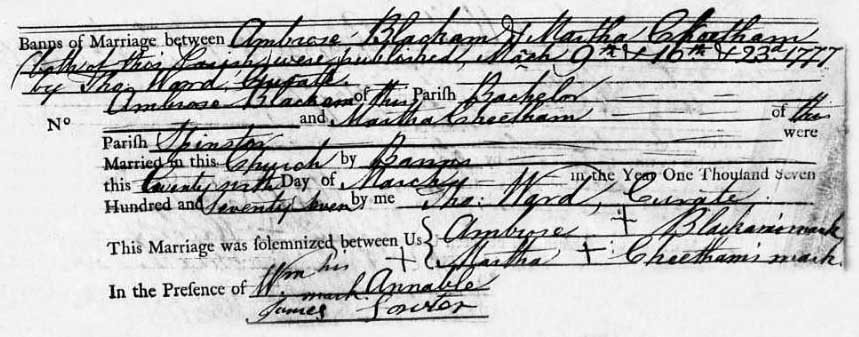 Banns of Marriage between Ambrose Blackam & Martha Cheetham
(both of this Parish) were published, March 9th & 16th & 23d 1777
by Tho. Ward, Curate
Ambrose Blackam of this Parish Bachelor
No and Martha Cheetham of this
Parish Spinster were
Married in this Church by Banns
this twenty ninth Day of March in the Year One Thousand Seven
Hundred and Seventy Seven by me Tho: Ward, Curate
This Marriage was solemnized between Us { Ambrose + Blackam's mark
Martha + Cheetham's mark.
In the Presence of Wm his + mark Annable
James Lowter